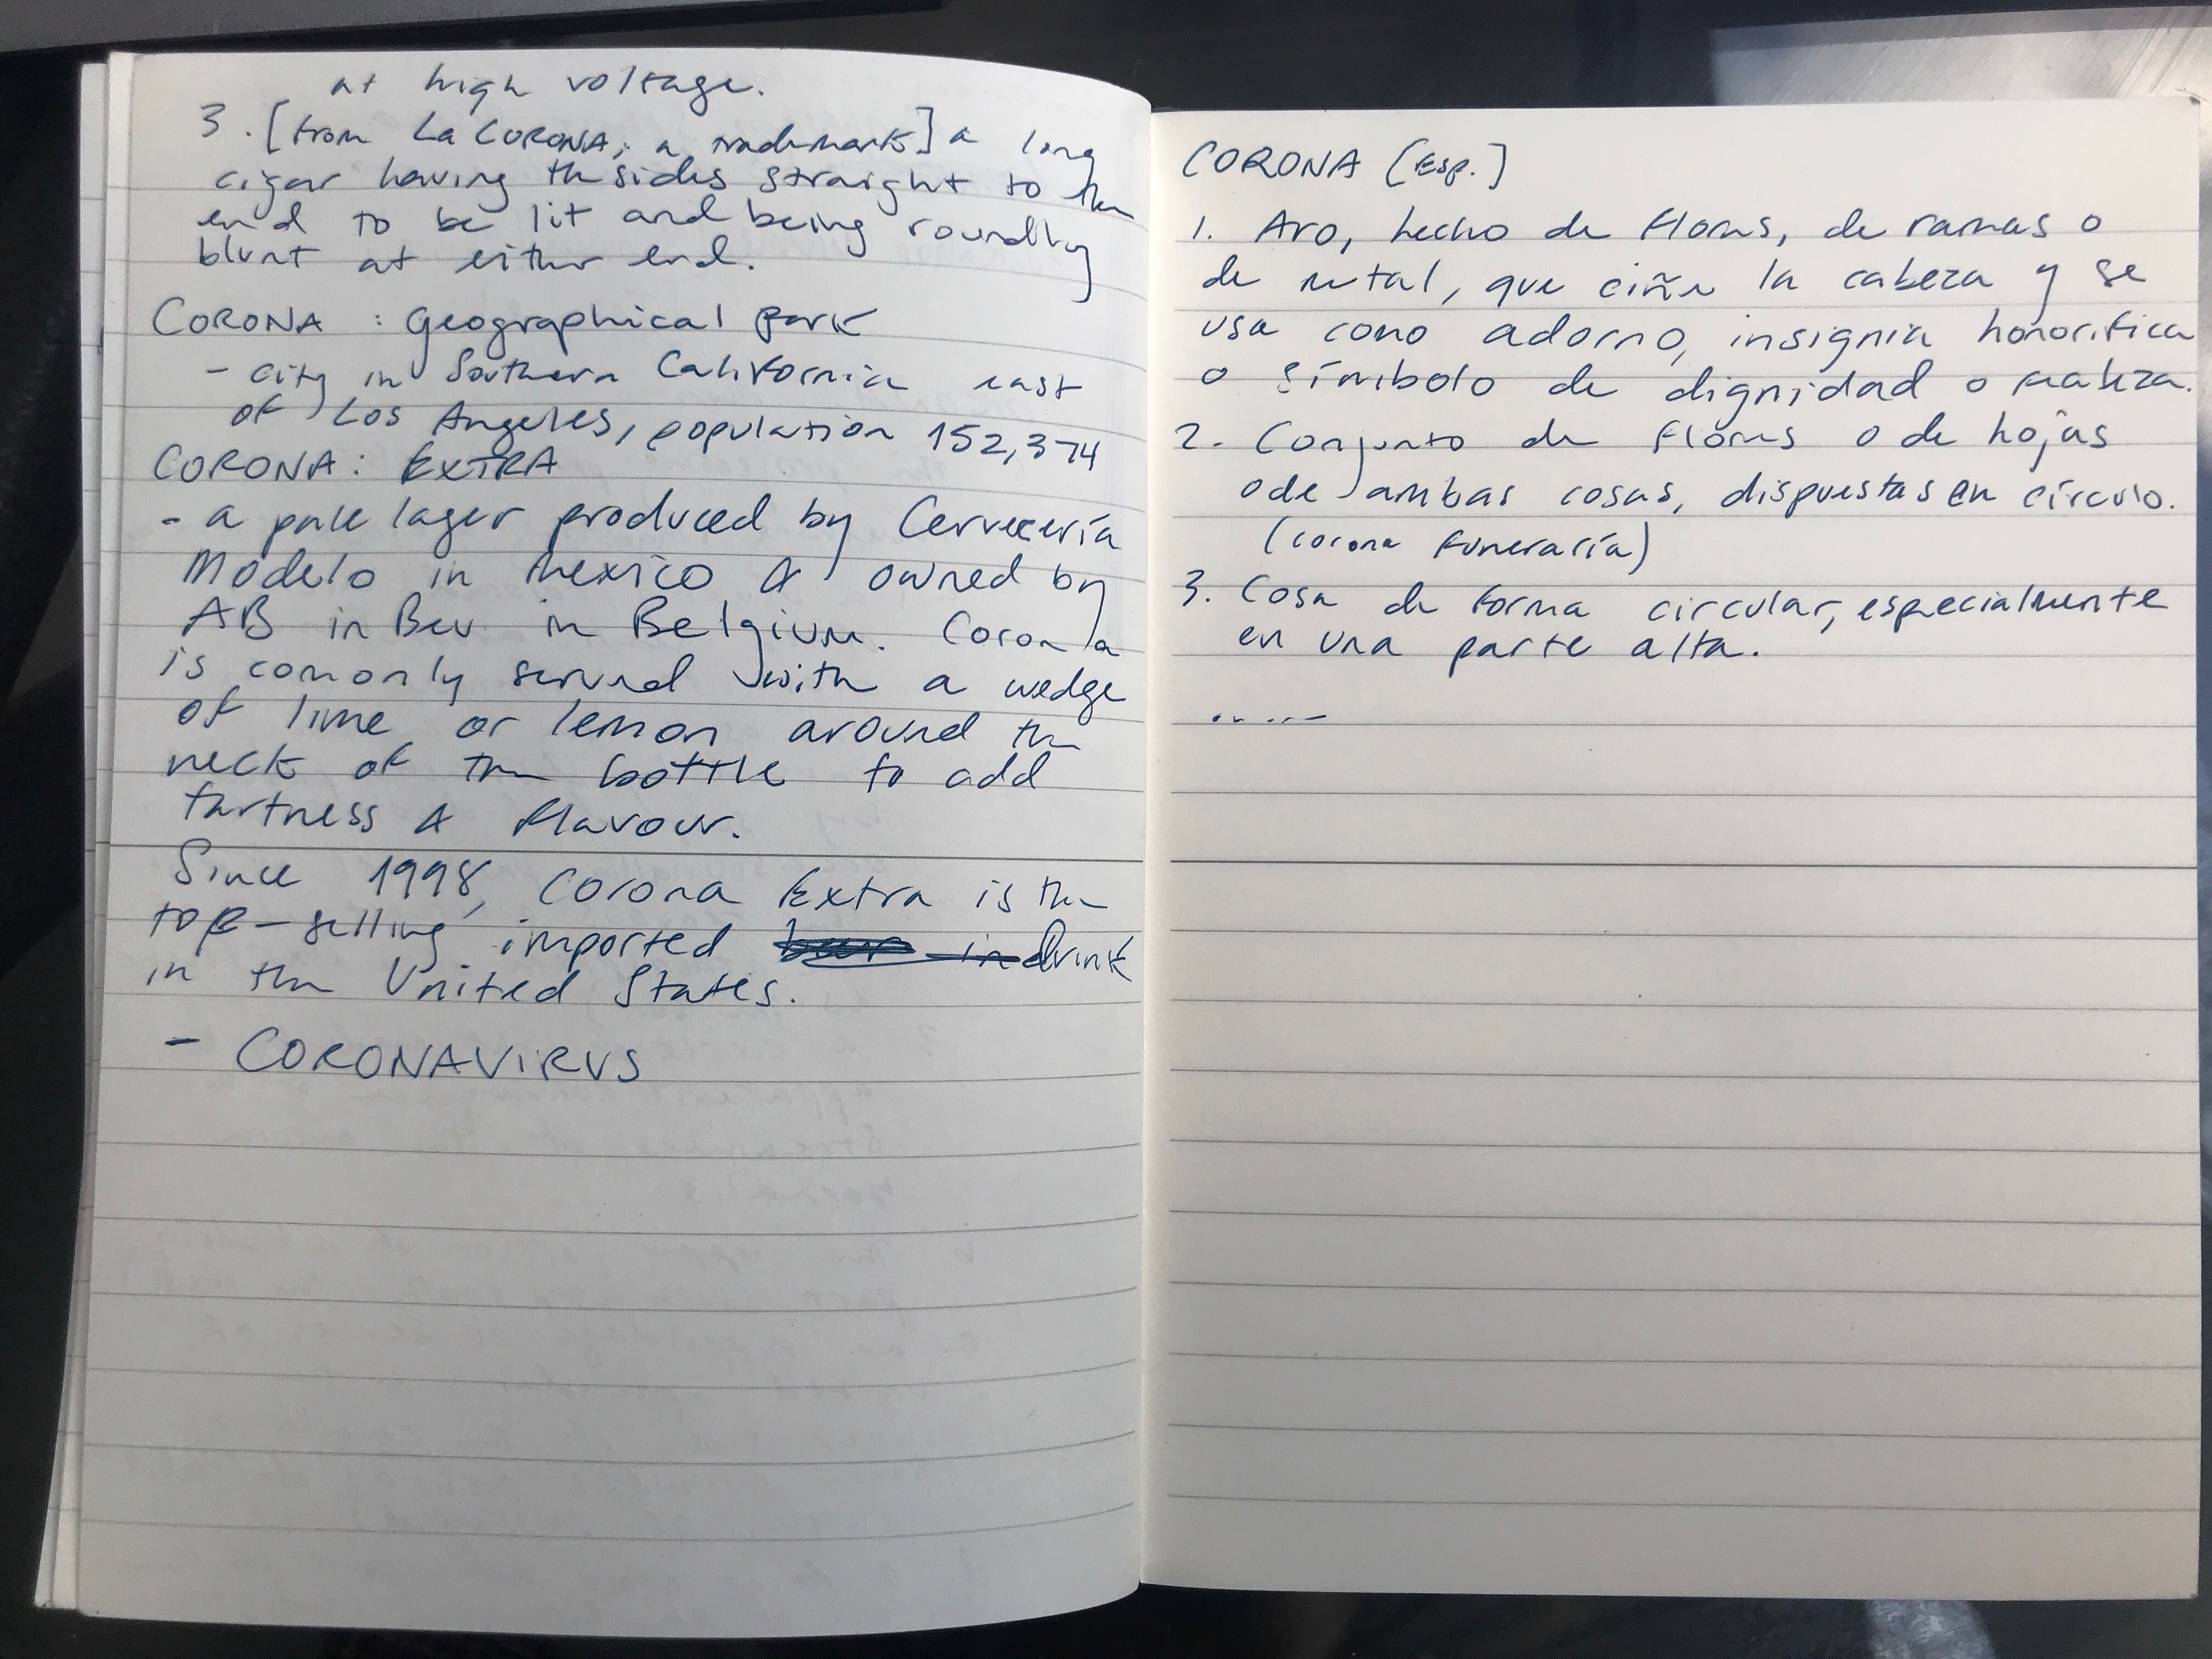 at high voltage.
3. [from La CORONA; a trademark] a long
cigar having the sides straight to the
end to be lit and being roundly
blunt at either end.
CORONA : Geographical park
- city in Southern California east
of Los Angeles, population 152,374
CORONA: EXTRA
- a pale lager produced by Cervecería
Modelo in Mexico & owned by
AB inBev in Belgium. Corona
is comonly served with a wedge
of lime or lemon around the
neck of the bottle to add
tartness & flavour.
Since 1998, Corona Extra is the
top-selling imported beer in drink
in the United States.
- CORONAVIRUS
CORONA [Esp.]
1. Aro, hecho de flores, de ramas o
de metal, que ciñe la cabeza y se
usa como adorno, insignia honorífica
o símbolo de dignidad o realeza.
2. Conjunto de flores o de hojas
o de ambas cosas, dispuestas en círculo.
(corona funeraría)
3. Cosa de forma circular, especialmente
en una parte alta.
......